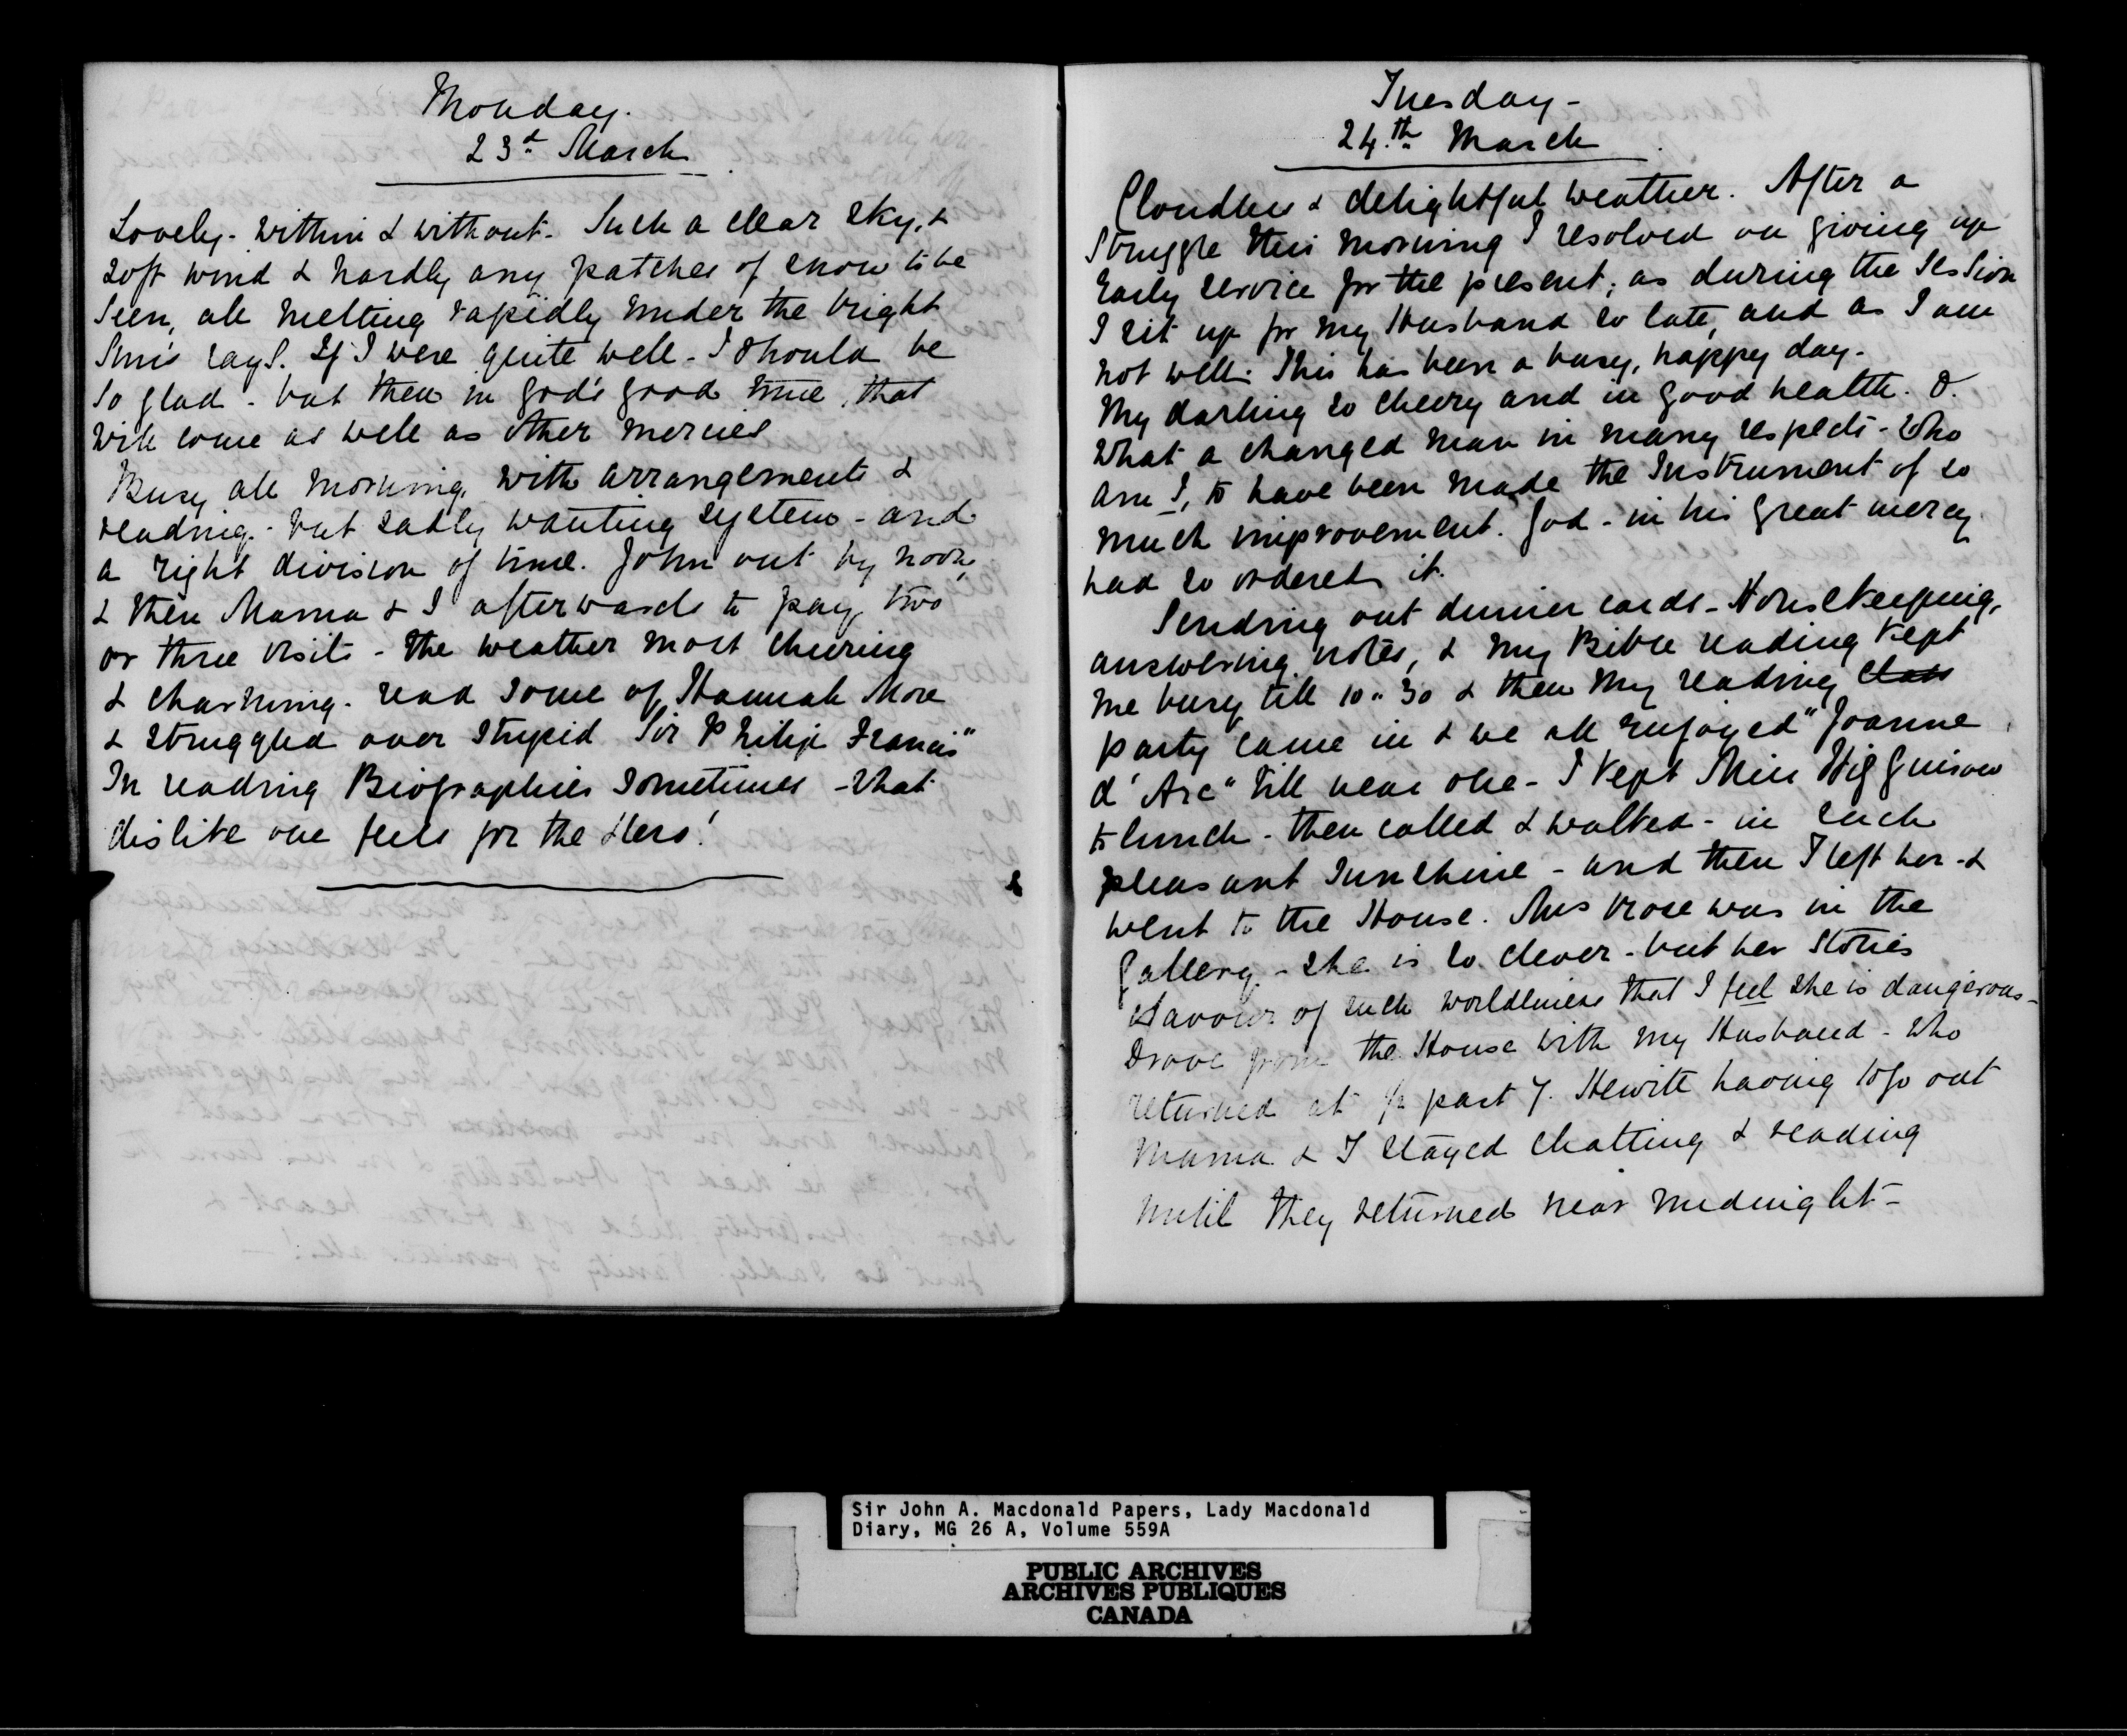 Monday.
23d March
Lovely - within & without - Such a clear sky, &
soft wind & hardly any patches of snow to be
seen, all melting rapidly under the bright
Sun's rays. If I were quite well - I should be
so glad - but then in God's good time, that
will come as well as other mercies
Busy all morning, with arrangements &
reading - but sadly wanting system - and
a right division of time. John out by noon,
& then Mama & I afterwards to pay two
or three visits - the weather most cheering
& charming - read some of Hannah More
& struggled over stupid Sir Philip Francis"
In reading Biographies sometimes - what
dislike one feels for the Hero!
Tuesday -
24th March
Cloudless & delightful weather. After a
struggle this morning I resolved on giving up
Early service for the present; as during the Session
I sit up for my Husband so late, and as I am
not well. This has been a busy, happy day -
My darling so cheery and in good health. O.
What a changed man in many respects - Who
am I, to have been made the Instrument of so
much improvement. God - in his great mercy
had so ordered it.
Sending out dinner cards - Housekeeping,
answering notes, & my Bible reading kept
me busy till 10.. 30 & then my reading class
party came in & we all enjoyed "Joanne
d'Arc" till near one - I kept Miss Higginson
to lunch - then called & walked - in such
pleasant Sunshine - and then I left her - &
went to the House. Mrs Rose was in the
Gallery - she is so clever - but her stories
savour of such worldliness that I feel she is dangerous -
Drove from the House with my Husband - who
returned at 1/2 past 7. Hewitt having to go out
Mama & I stayed chatting & reading
until they returned near midnight -
Sir John A. Macdonald Papers, Lady Macdonald
Diary, MG 26 A, Volume 559A
PUBLIC ARCHIVES
ARCHIVES PUBLIQUES
CANADA